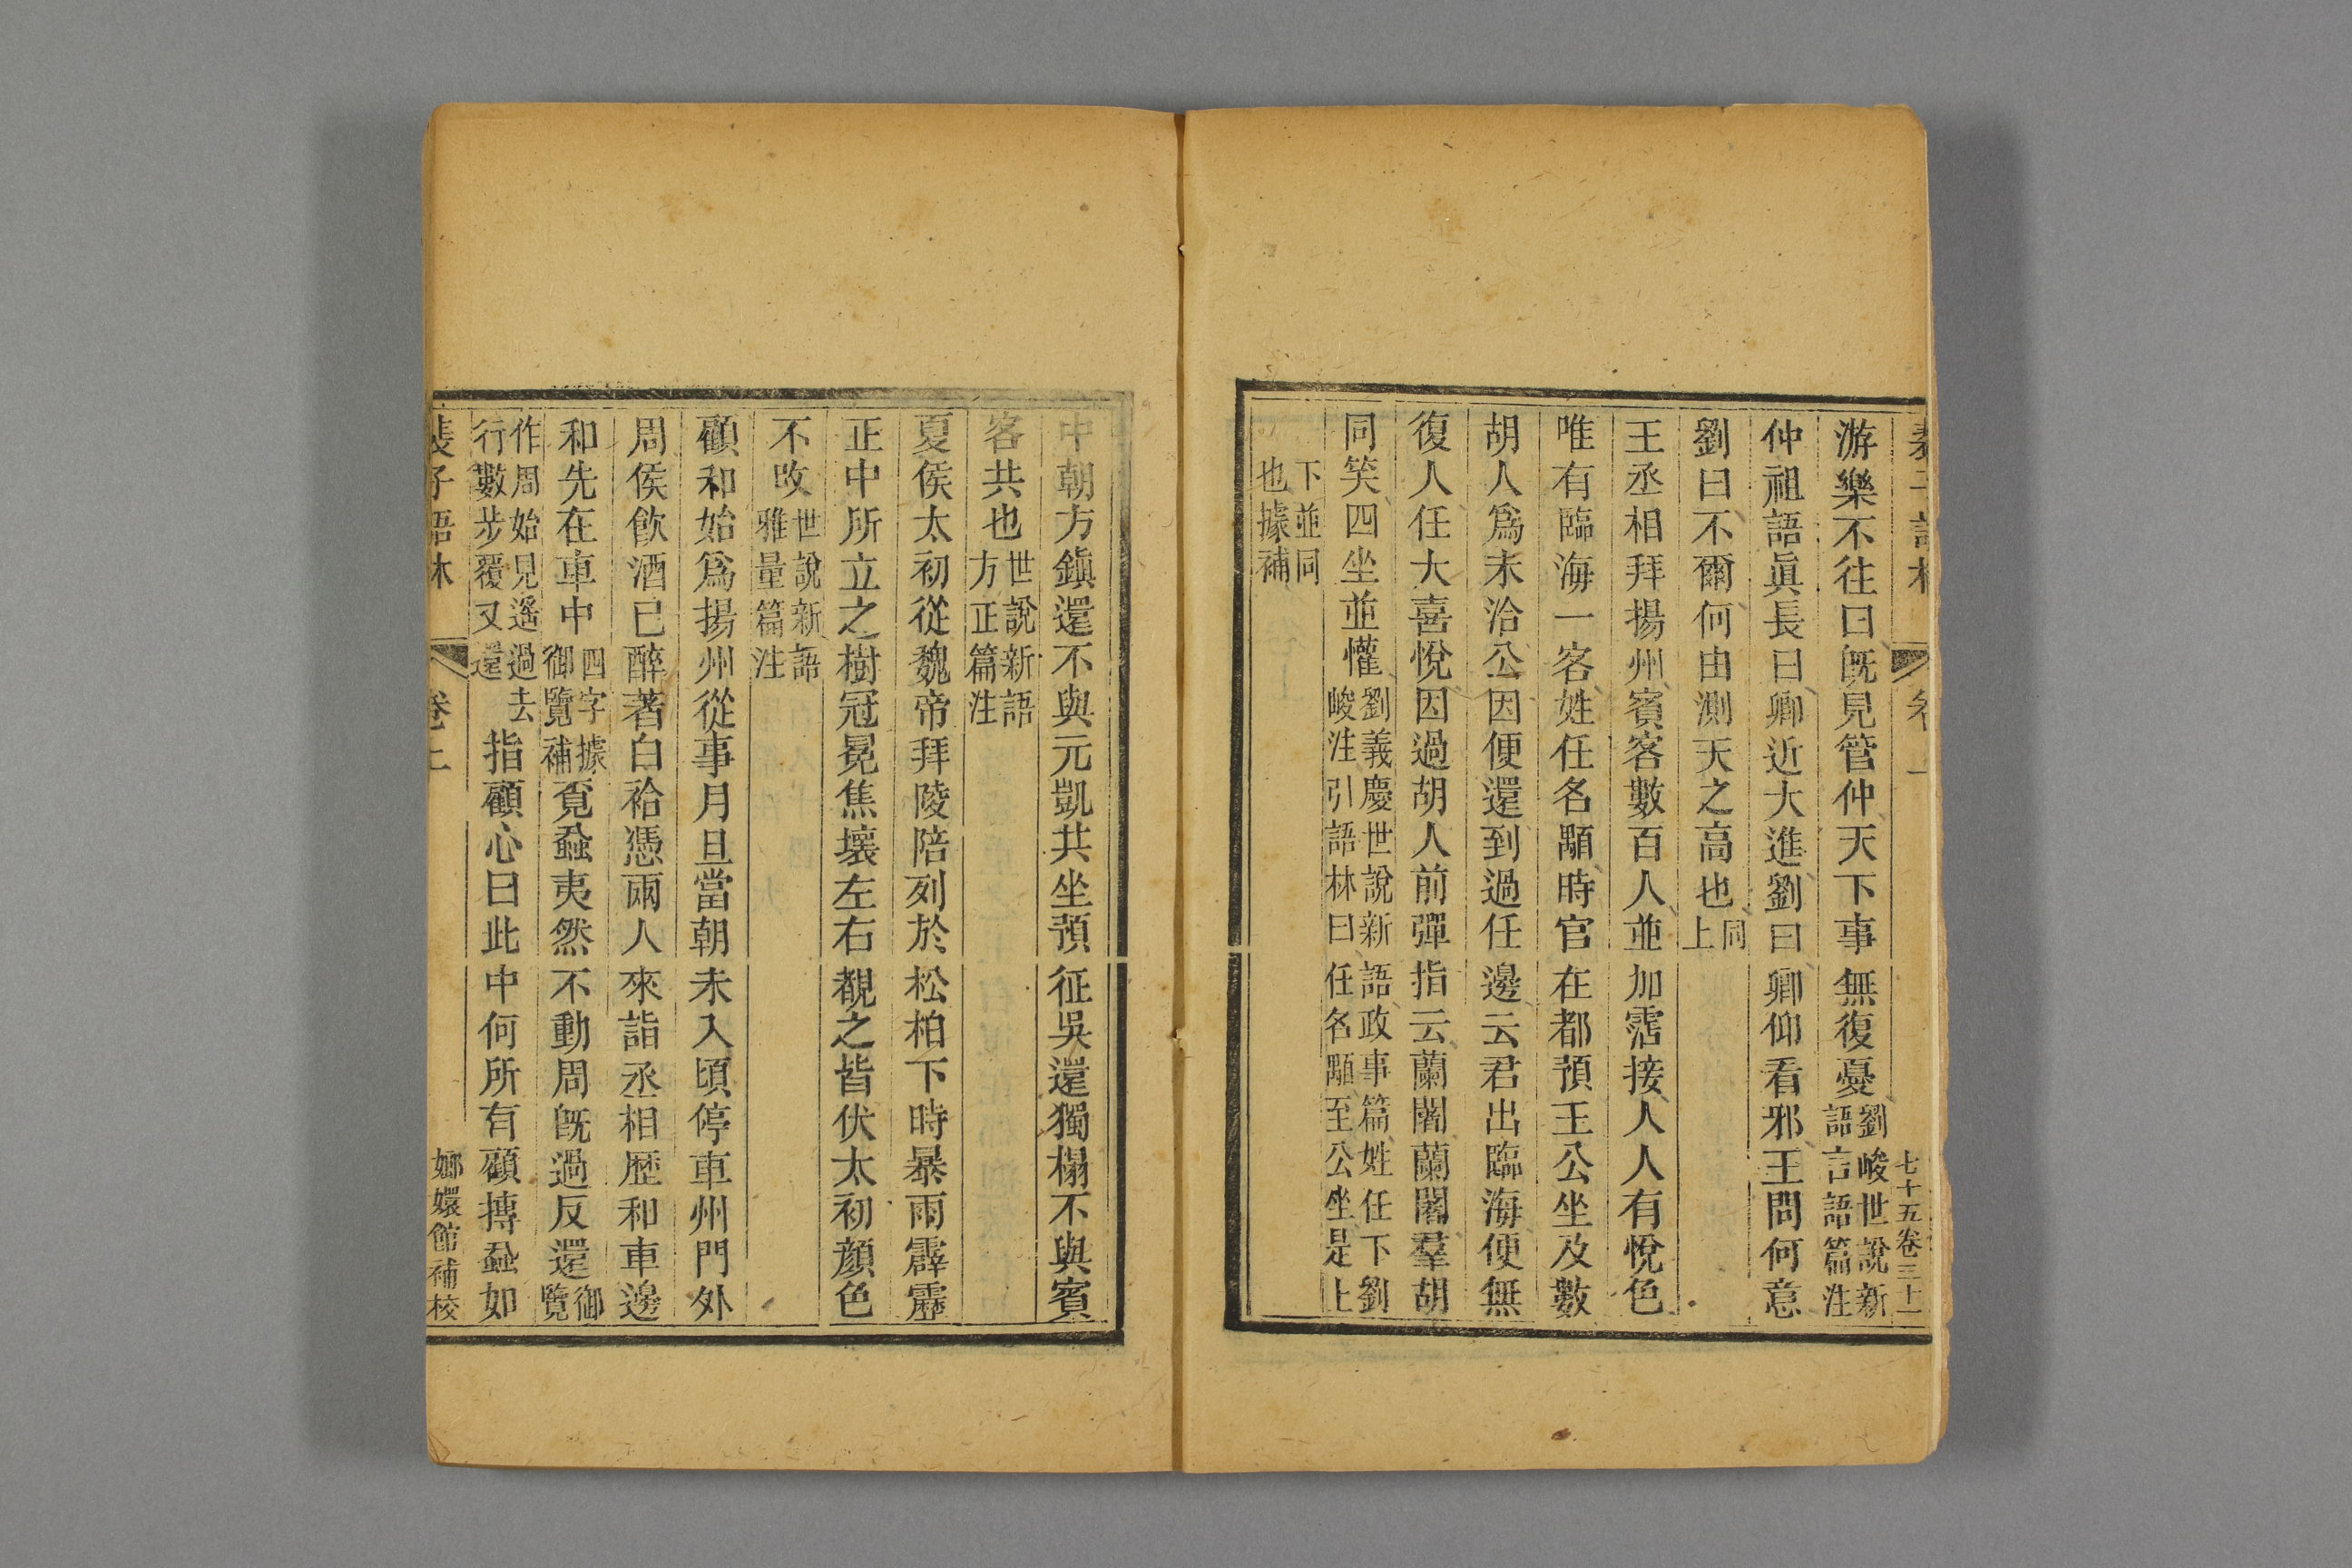 七十五卷三十一
游樂不往曰旣見管仲天下事無復憂劉峻世說新語言語篇注
仲祖語眞長曰卿近大進劉曰卿仰看邪王問何意
劉曰不爾何由測天之高也同上
王丞相拜揚州賓客數百人並加霑接人人有悅色
唯有臨海一客姓任名顒時官在都預王公坐及數
胡人爲未洽公因便還到過任邊云君出臨海便無
復人任大喜悅因過胡人前彈指云蘭闍蘭闍羣胡
同笑四坐並懽劉義慶世說新語政事篇姓任下劉峻注引語林曰任名顒至公坐是上
下並同也據補
中朝方鎮還不與元凱共坐預征吳還獨榻不與賓
客共也世說新語方正篇注
夏侯太初從魏帝拜陵陪列於松柏下時暴雨霹靂
正中所立之樹冠冕焦壞左右覩之皆伏太初顔色
不改世說新語雅量篇注
顧和始爲揚州從事月旦當朝未入頃停車州門外
周侯飮酒已醉著白袷憑兩人來詣丞相歷和車邊
和先在車中四字據御覽補覓蝨夷然不動周旣過反還御覽
作周始見遙過去行數步覆又還指顧心曰此中何所有顧搏蝨如
裴子語林 卷上 嫏嬛館補校